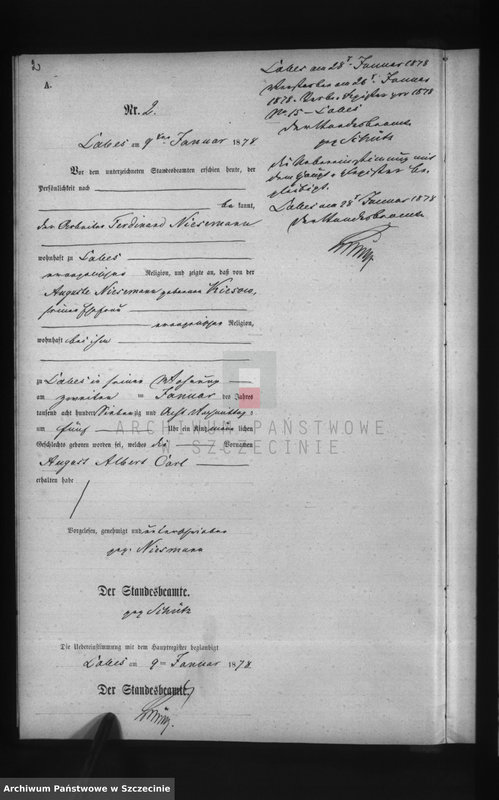 2
A.
Nr. 2.
Labes am 9ten Januar 1878
Vor dem unterzeichneten Standesbeamten erschien heute, der
Persönlichkeit nach
be kannt,
der Arbeiter Ferdinand Niesemann
wohnhaft zu Labes
evangelischer Religion, und zeigte an, daß von der
Auguste Niesemann geborenen Kiesow,
seiner Ehefrau
evangelischer Religion,
wohnhaft bei ihm
zu Labes in seiner Wohnung
am zweiten Januar des Jahres
tausend acht hundert siebenzig und acht Nachmittags
um fünf Uhr ein Kind männlichen
Geschlechts geboren worden sei, welches die Vornamen
August Albert Carl
erhalten habe
Vorgelesen, genehmigt und unterschrieben
gez. Niesmann
Der Standesbeamte.
gez Schütz
Die Uebereinstimmung mit dem Hauptregister beglaubigt
Labes am 9ten Januar 1878
Der Standesbeamte.
Labes am 28t Januar 1878
Verstorben am 26t Januar
1878. Sterbe-Register pro 1878
No. 15 - Labes
Der Standesbeamte
gez Schütz
Die Uebereinstimmung mit
dem Haupt-Register be-
glaubigt.
Labes am 28t Januar 1878
Der Standesbeamte
ARCHIWUM PAŃSTWOWE
W SZCZECINIE
Archiwum Państwowe w Szczecinie